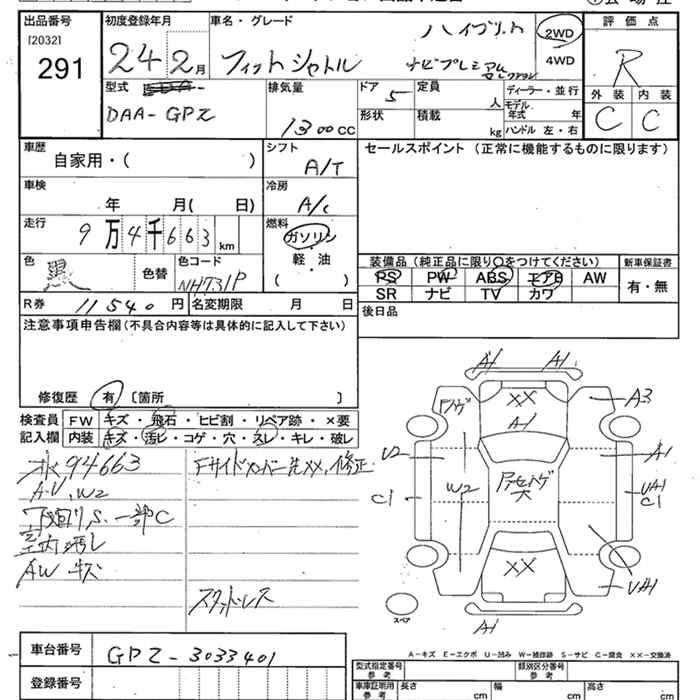 出品番号 初度登録年月 車名・グレード 評価点
[2032] ハイブリット 2WD
291 24 2月 フィットシャトル ナビプレミアムセレクション 4WD R
型式 排気量 ドア 定員 ディーラー・並行 外装 内装
DAA-GPZ 5 人 モデル年式 年 C C
1300CC 形状 積載 kg ハンドル 左・右
車歴 シフト セールスポイント (正常に機能するものに限ります)
自家用・( ) A/T
車検 冷房
年 月( 日) A/C
走行 燃料
9万4千663km ガソリン
色 色替 色コード 軽・油 装備品(純正品に限り○をつけてください) 新車保証書
黒 NH731P ( ) PS PW ABS エアB AW 有・無
SR ナビ TV カワ
R券 11540円 名変期限 月 日 後日品
注意事項申告欄(不具合内容等は具体的に記入して下さい)
修復歴 有 〔箇所 〕
検査員 FW キズ・飛石・ヒビ割・リペア跡・×要
記入欄 内装 キズ・汚レ・コゲ・穴・スレ・キレ・破レ
94663 Fサイドメンバー先XX、修正
A.U, W2
下廻りS、一部C
室内汚レ
AW キズ
スタッドレス
A1 A1
XX A3
A1
U2 A1
W2 UA1
C1 C1
XX UA1
スペア A1
A-キズ E-エクボ U-凹み W-補修跡 S-サビ C-腐食 XX-交換済
車台番号 GPZ-3033401 型式指定番号 参考 類別区分番号 参考
登録番号 車庫証明用 参考 長さ cm 幅 cm 高さ cm